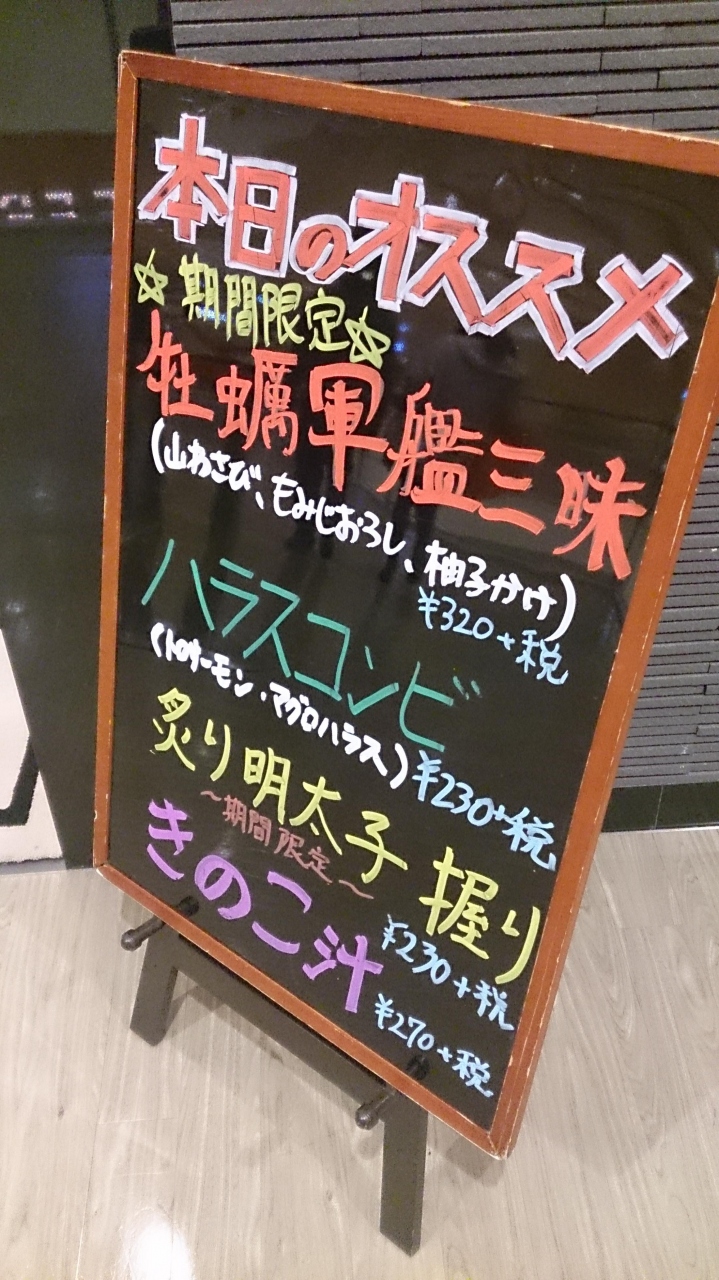 本日のオススメ
☆期間限定☆
牡蠣軍艦三昧
(山わさび、もみじおろし、柚子かけ)
¥320+税
ハラスコンビ
(トロサーモン・マグロハラス)
¥230+税
炙り明太子 握り
¥230+税
～期間限定～
きのこ汁
¥270+税